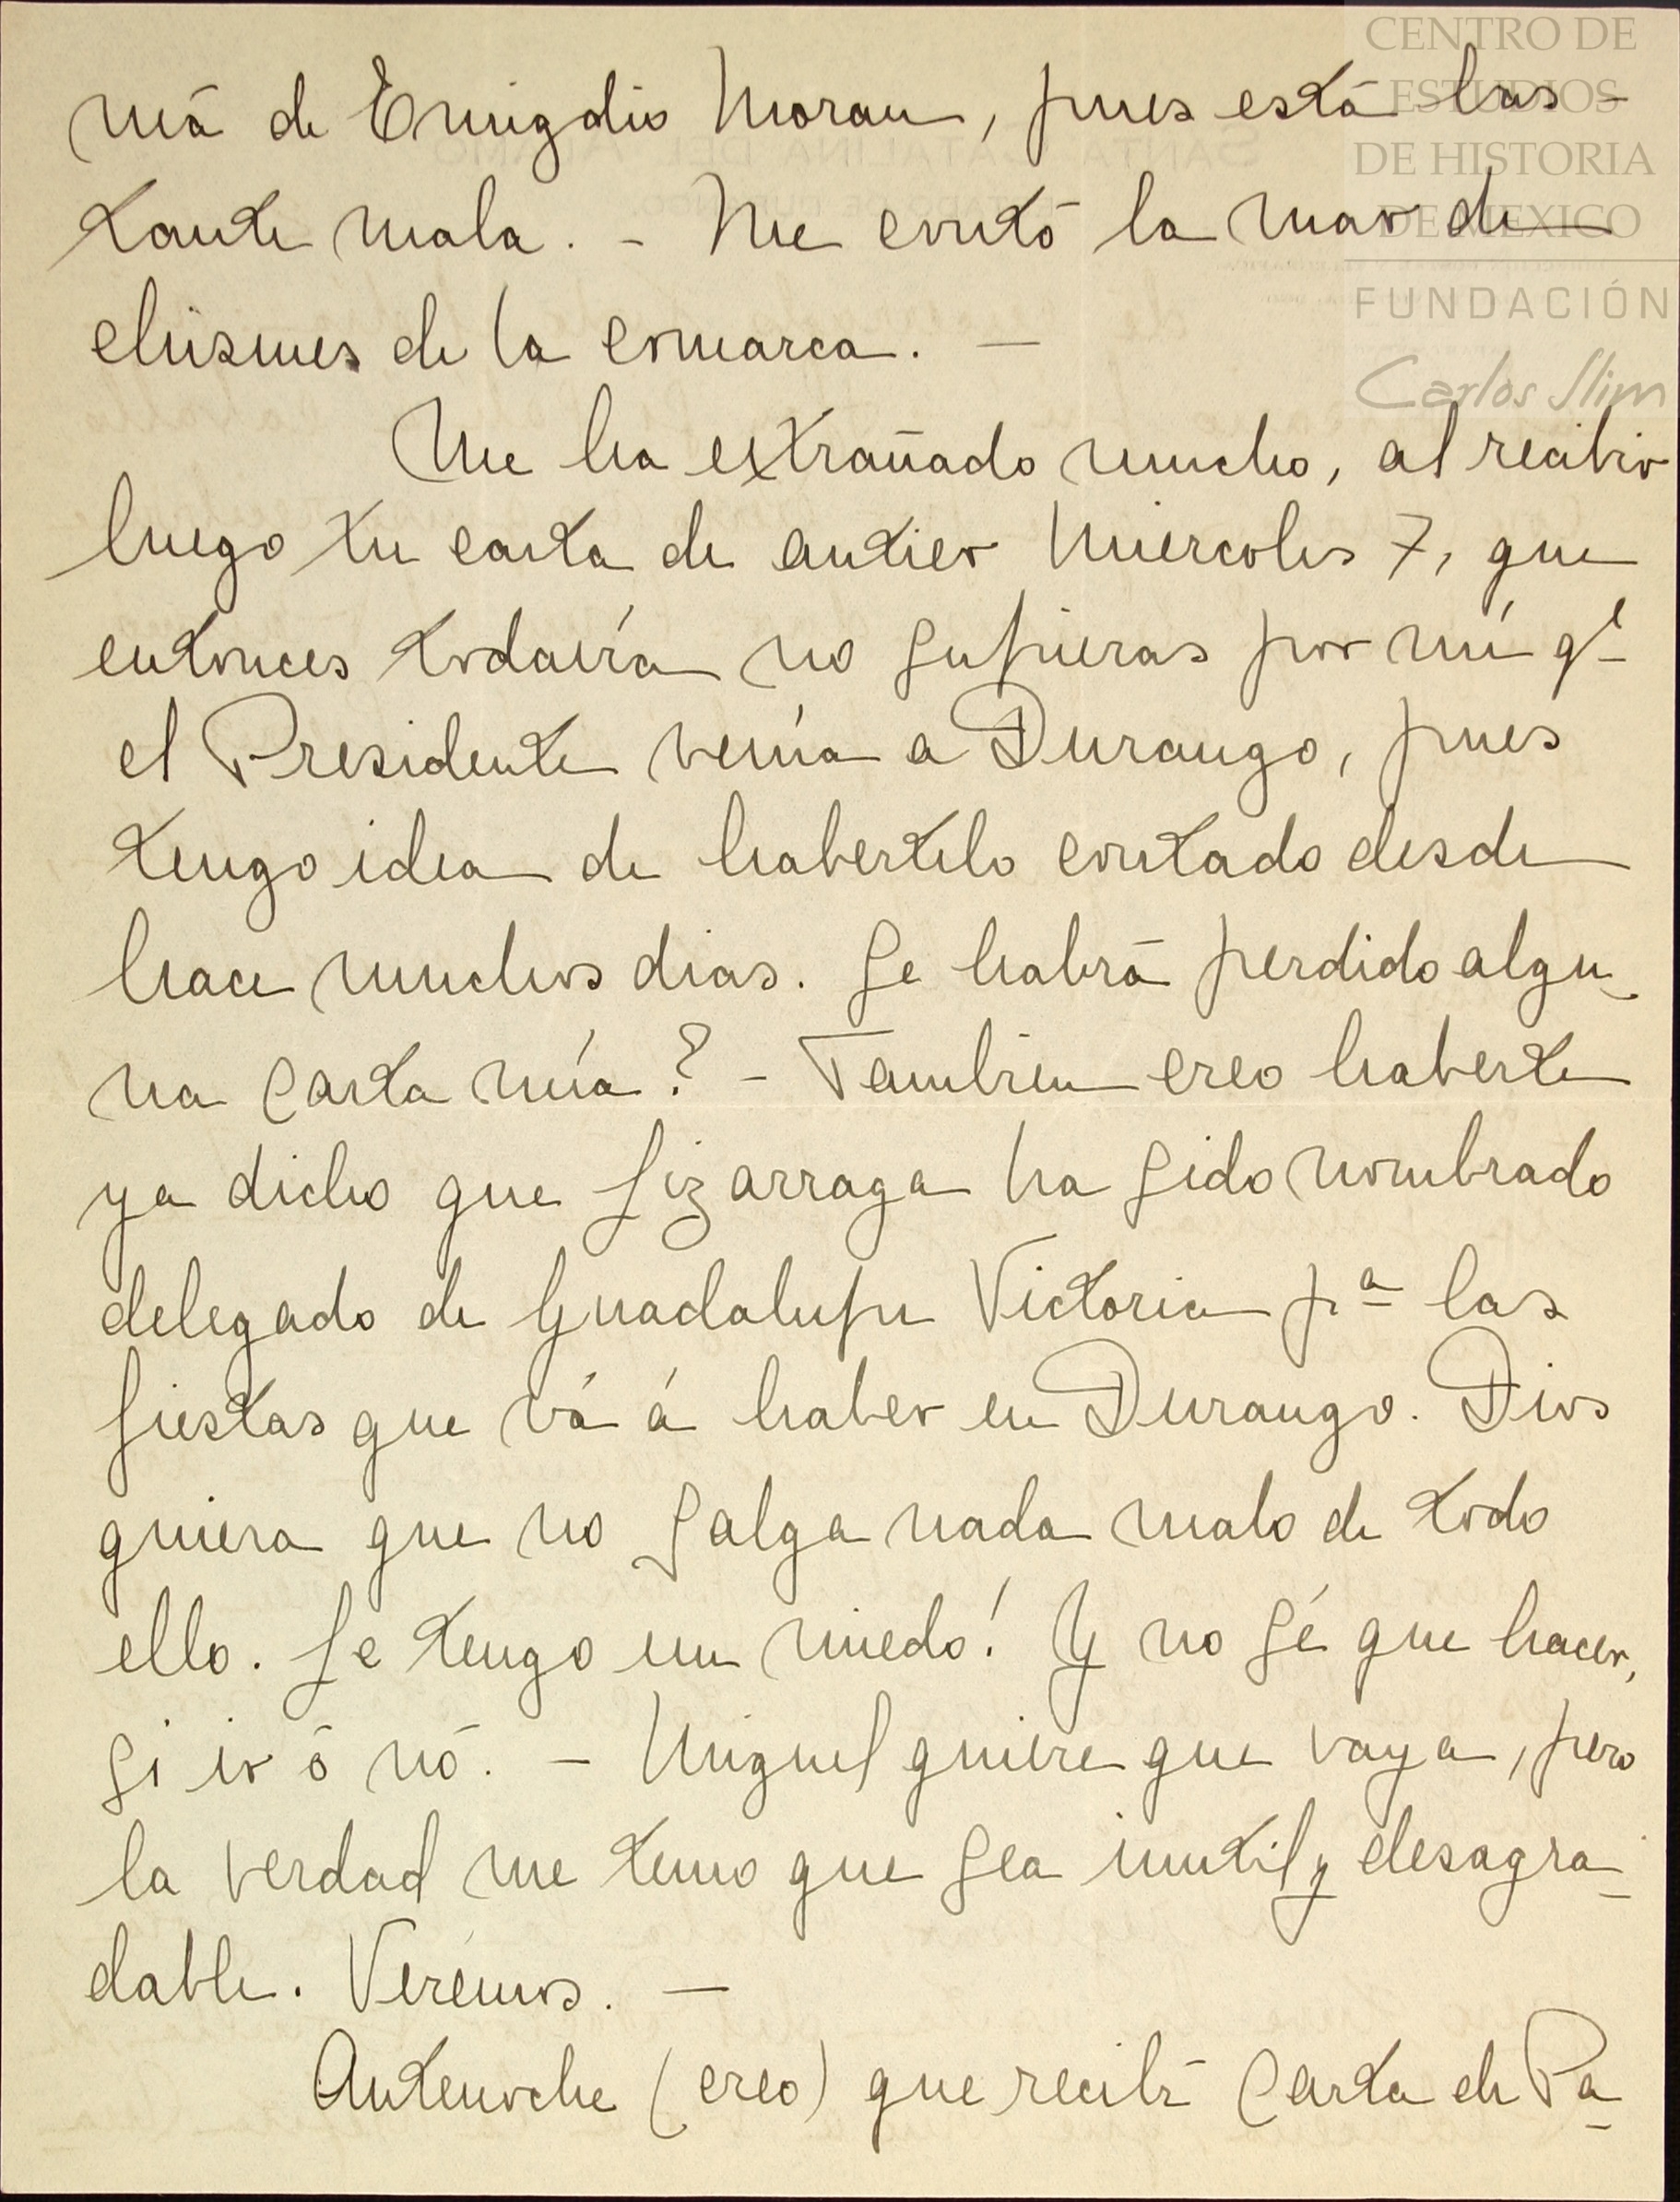 CENTRO DE
ESTUDIOS
DE HISTORIA
DE MEXICO
FUNDACIÓN
Carlos Slim
má de Emigdio Moran, pues está bas-
tante mala. - Me contó la mar de
chismes de la comarca. —
Me ha extrañado mucho, al recibir
luego tu carta de antier Miercoles 7, que
entonces todavía no supieras por mí qe
el Presidente venía a Durango, pues
tengo idea de habertelo contado desde
hace muchos dias. Se habrá perdido algu-
na carta mía? - Tambien creo haberte
ya dicho que Lizarraga ha sido nombrado
delegado de Guadalupe Victoria pa las
fiestas que vá á haber en Durango. Dios
quiera que no salga nada malo de todo
ello. Le tengo un miedo! Y no sé que hacer,
si ir ó nó. - Miguel quiere que vaya, pero
la verdad me temo que sea inutil y desagra-
dable. Verémos. —
Antenoche (creo) que recibí carta de Pa-